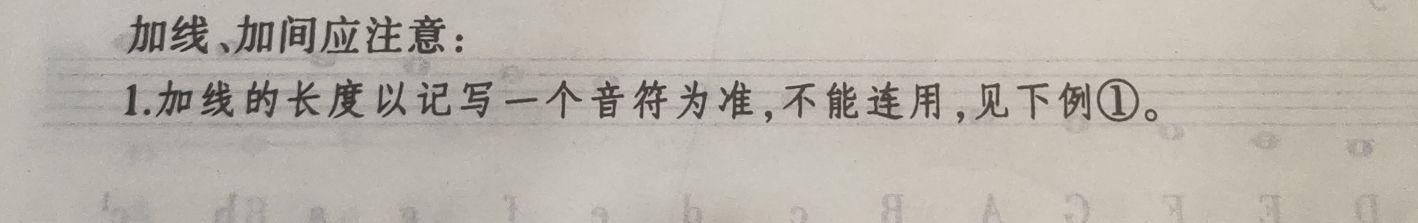 加线、加间应注意：
1.加线的长度以记写一个音符为准，不能连用，见下例①。